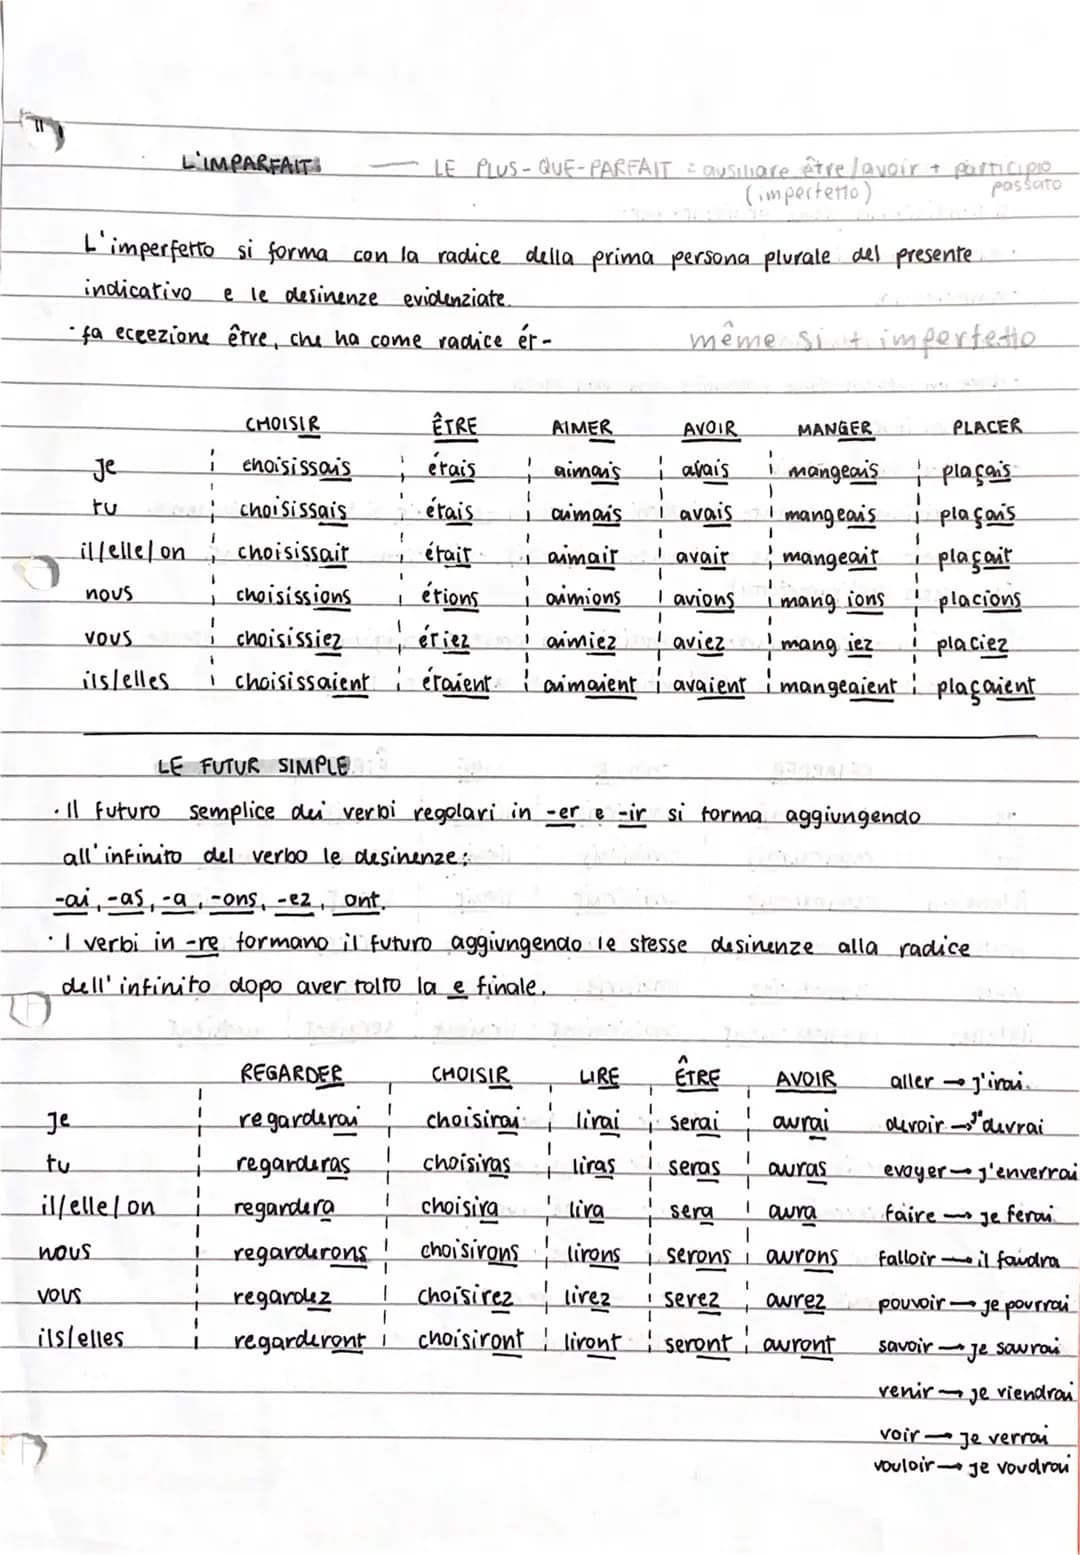 L'IMPARFAIT — LE PLUS-QUE-PARFAIT = ausiliare être/avoir + participio passato
(imperfetto)
L'imperfetto si forma con la radice della prima persona plurale del presente
indicativo e le desinenze evidenziate.
· fa eccezione être, che ha come radice ét- même si + imperfetto
CHOISIR ÊTRE AIMER AVOIR MANGER PLACER
Je choisissais étais aimais avais mangeais plaçais
tu choisissais étais aimais avais mangeais plaçais
il/elle/on choisissait était aimait avait mangeait plaçait
nous choisissions étions aimions avions mang ions placions
vous choisissiez étiez aimiez aviez mang iez placiez
ils/elles choisissaient étaient aimaient avaient mangeaient plaçaient
LE FUTUR SIMPLE
· Il futuro semplice dei verbi regolari in -er e -ir si forma aggiungendo
all'infinito del verbo le desinenze:
-ai, -as, -a, -ons, -ez, ont.
· I verbi in -re formano il futuro aggiungendo le stesse desinenze alla radice
dell'infinito dopo aver tolto la e finale.
REGARDER CHOISIR LIRE ÊTRE AVOIR aller → j'irai.
Je regarderai choisirai lirai serai aurai devoir → j'devrai
tu regarderas choisiras liras seras auras evoyer → j'enverrai
il/elle/on regardera choisira lira sera aura faire → je ferai
nous regarderons choisirons lirons serons aurons falloir → il faudra
vous regardez choisirez lirez serez aurez pouvoir → je pourrai
ils/elles regarderont choisiront liront seront auront savoir → je saurai
venir → je viendrai
voir → je verrai
vouloir → je voudrai